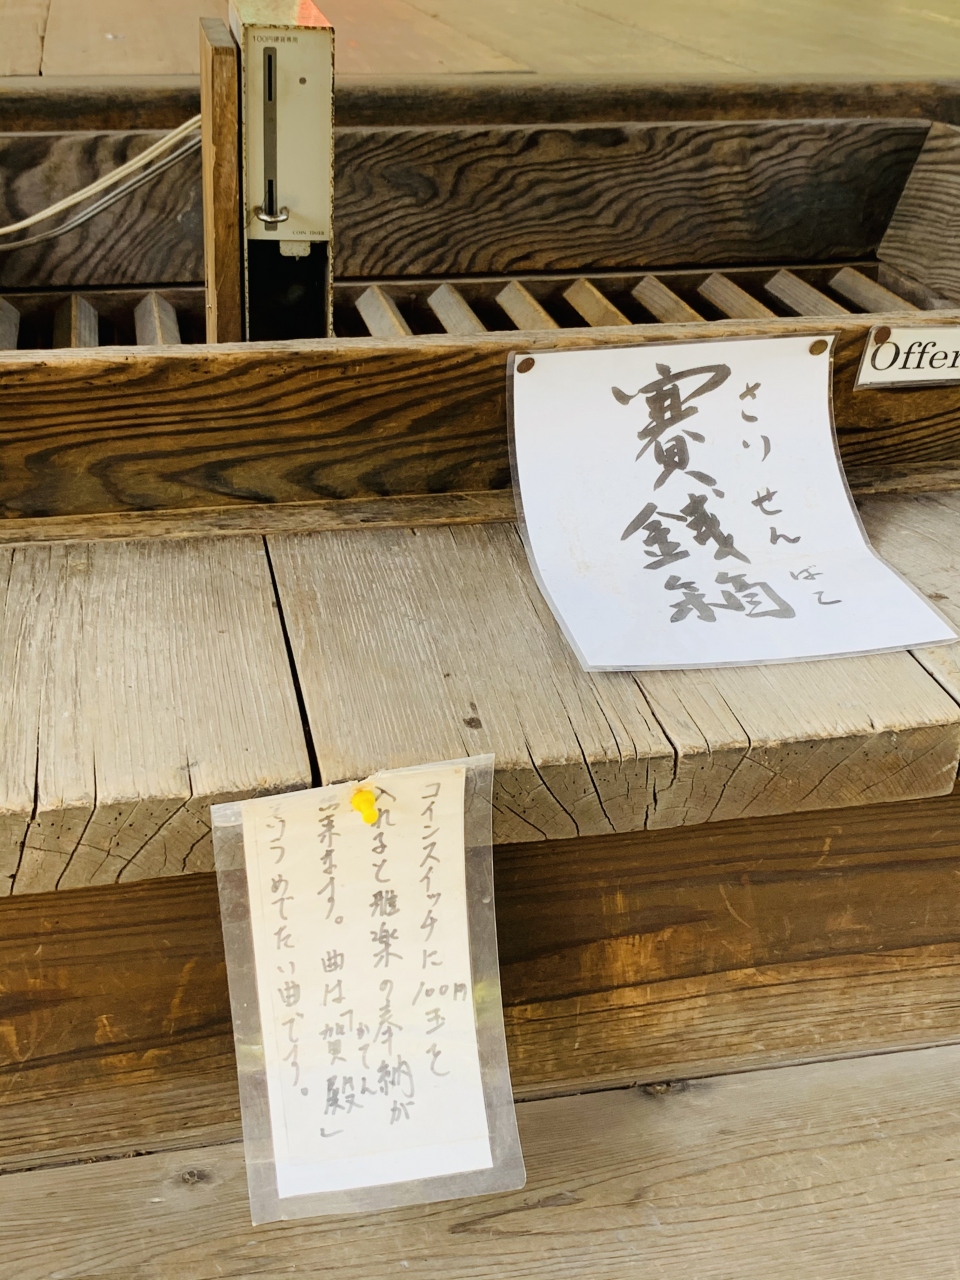 100円硬貨専用
COIN TIMER
Offer
賽銭箱
さいせんばこ
コインスイッチに100円玉を
入れると雅楽の奉納が
出来ます。曲は「賀殿」
かてん
めでたい曲です。